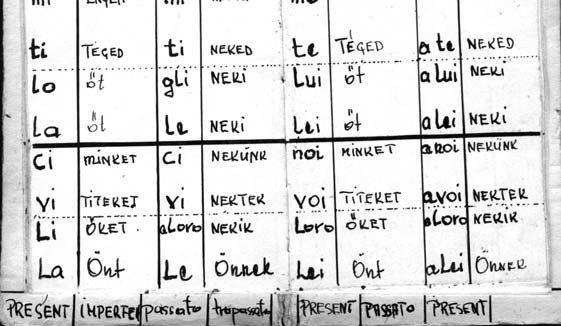 ti TÉGED ti NEKED te TÉGED a te NEKED
Lo őt gli NEKi Lui őt a lui NEKi
La őt Le NEKi Lei őt a lei NEKi
Ci MINKET Ci NEKÜNK noi MINKET a noi NEKÜNK
Vi TITEKET Vi NEKTEK VOI TITEKET a voi NEKTEK
Li ŐKET a Loro NEKIK Loro ŐKET a Loro NEKIK
La Önt Le Önnek Lei Önt a Lei ÖNNEK
PRESENT IMPERFE passato trapassato PRESENT PASSATO PRESENT